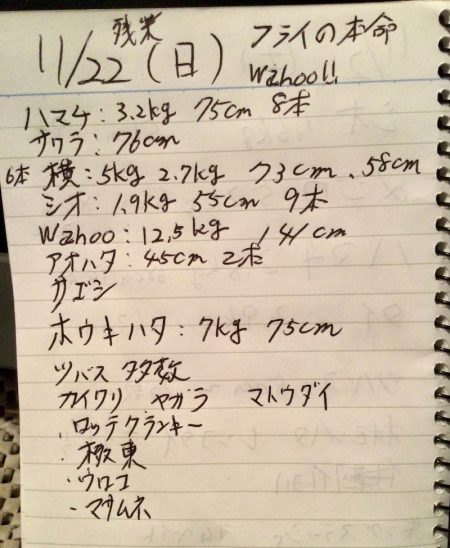 残業
11/22(日) フライの本命
Wahoo!!
ハマチ:3.2kg 75cm 8本
サワラ:76cm
6本 横:5kg 2.7kg 73cm、58cm
シオ:1.9kg 55cm 9本
Wahoo:12.5kg 141cm
アオハタ:45cm 2本
サゴシ
ホウキハタ:7kg 75cm
ツバス 多数
カイワリ ヤガラ マトウダイ
ロッテクランキー
・極東
・ウロコ
・マサムネ